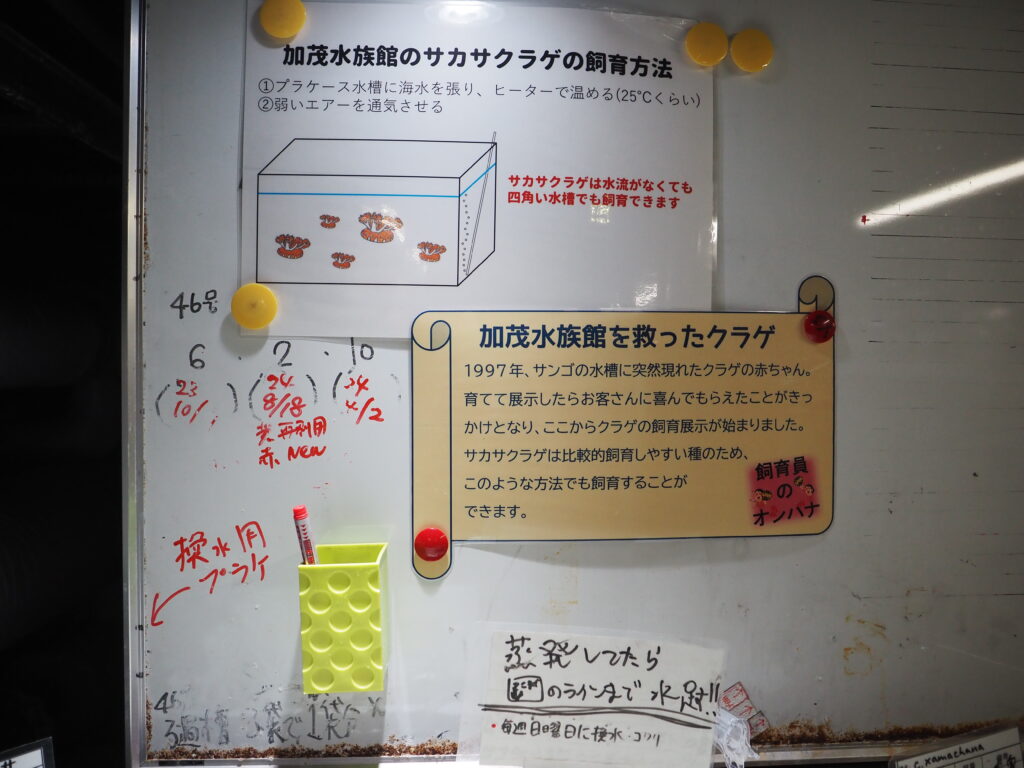 加茂水族館のサカサクラゲの飼育方法
①プラケース水槽に海水を張り、ヒーターで温める(25℃くらい)
②弱いエアーを通気させる
サカサクラゲは水流がなくても
四角い水槽でも飼育できます
46号
6 . 2 . 10
(23 10/) (24 8/18) (24 4/2)
再利用
赤 New
加茂水族館を救ったクラゲ
1997年、サンゴの水槽に突然現れたクラゲの赤ちゃん。
育てて展示したらお客さんに喜んでもらえたことがきっ
かけとなり、ここからクラゲの飼育展示が始まりました。
サカサクラゲは比較的飼育しやすい種のため、
このような方法でも飼育することが
できます。
飼育員
の
オハナ
換水用
プラケ
蒸発してたら
のラインまで水足!!
・毎週日曜日に換水